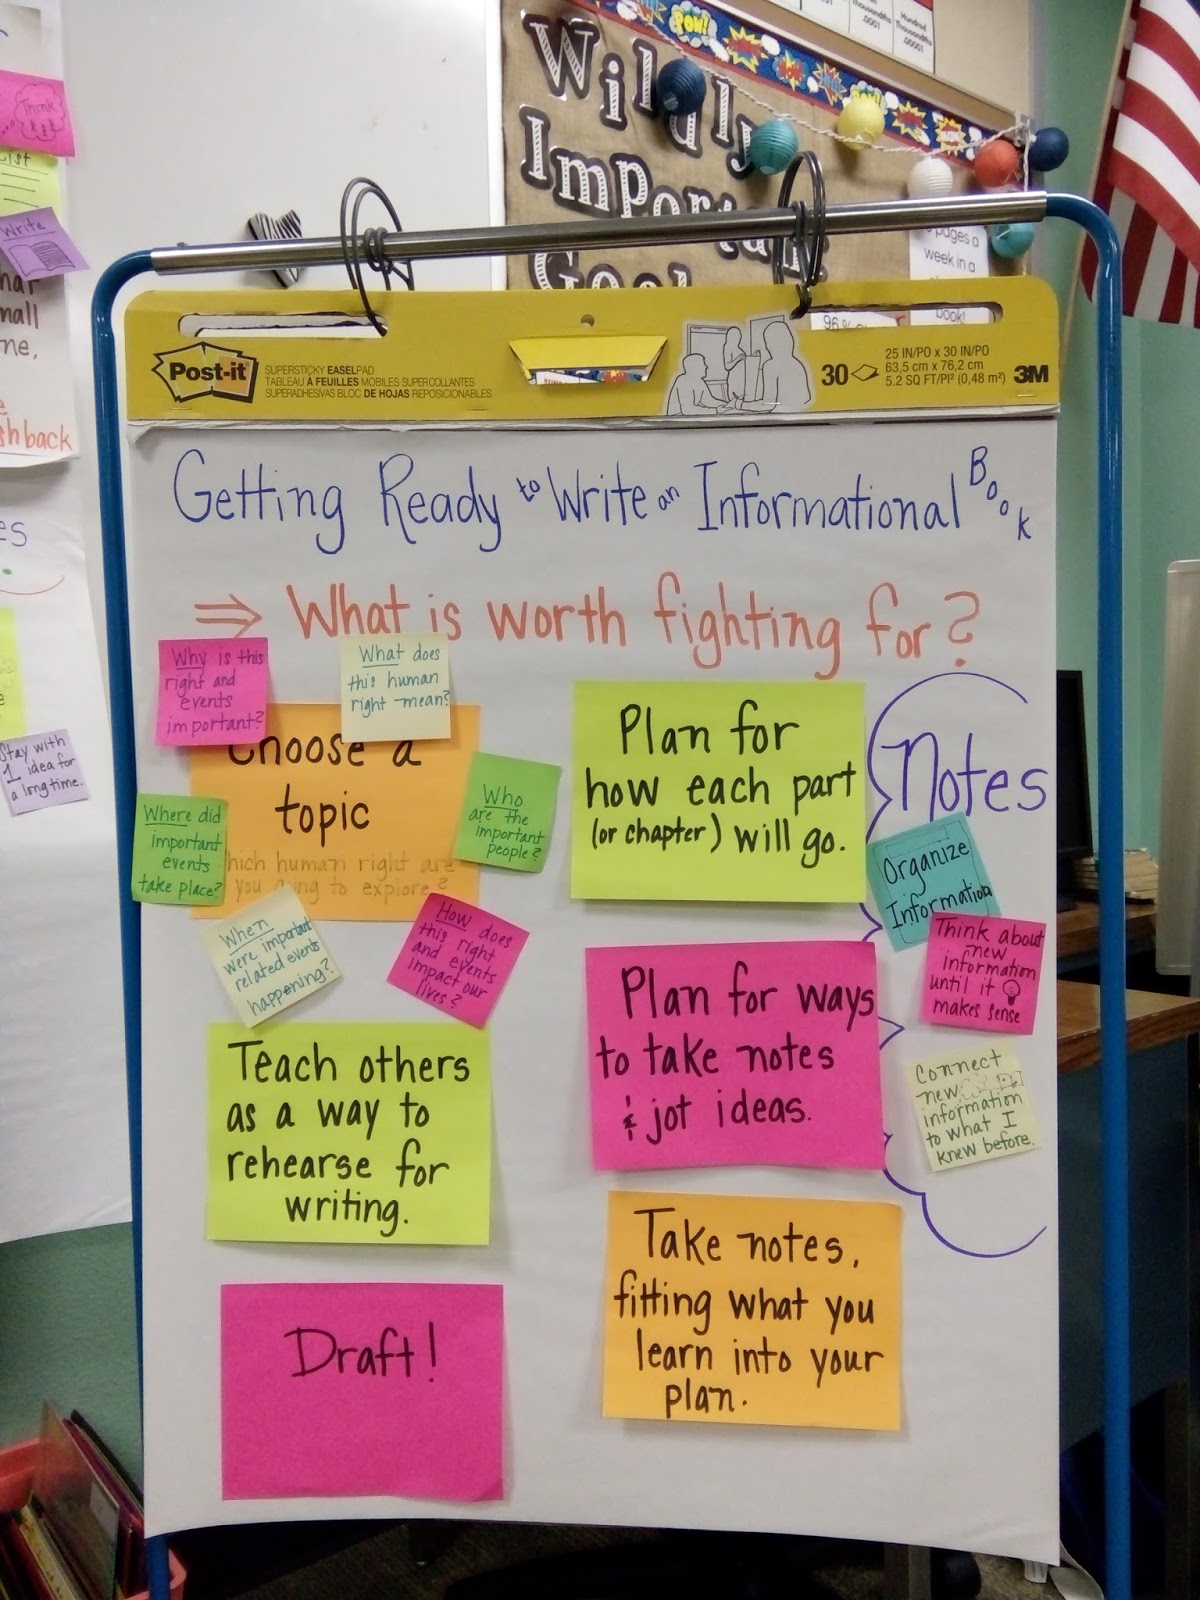 Think
List
Write
mall
me,
shback
es
Stay with
1 idea for
a long time.
Wildly
Important
Goal
POW!
Hundred
Thousandths
.00001
Thousandths
.0001
pages a
week in a
book!
96%
Post-it
SUPERSTICKY EASEL PAD
TABLEAU À FEUILLES MOBILES SUPERCOLLANTES
SUPERADHESIVAS BLOC DE HOJAS REPOSICIONABLES
30
25 IN/PO x 30 IN/PO
63,5 cm x 76,2 cm
5.2 SQ FT/PI² (0,48 m²)
3M
Getting Ready to Write an Informational Book
⇒ What is worth fighting for?
Why is this
right and
events
important?
What does
this human
right mean?
Choose a
topic
hich human right are
you going to explore?
Where did
important
events
take place?
Who
are the
important
people?
When
were important
related events
happening?
How does
this right
and events
impact our
lives?
Plan for
how each part
(or chapter) will go.
Notes
Organize
Information
Think about
new
information
until it
makes sense
Connect
new
information
to what I
knew before.
Plan for ways
to take notes
& jot ideas.
Teach others
as a way to
rehearse for
writing.
Take notes,
fitting what you
learn into your
plan.
Draft!